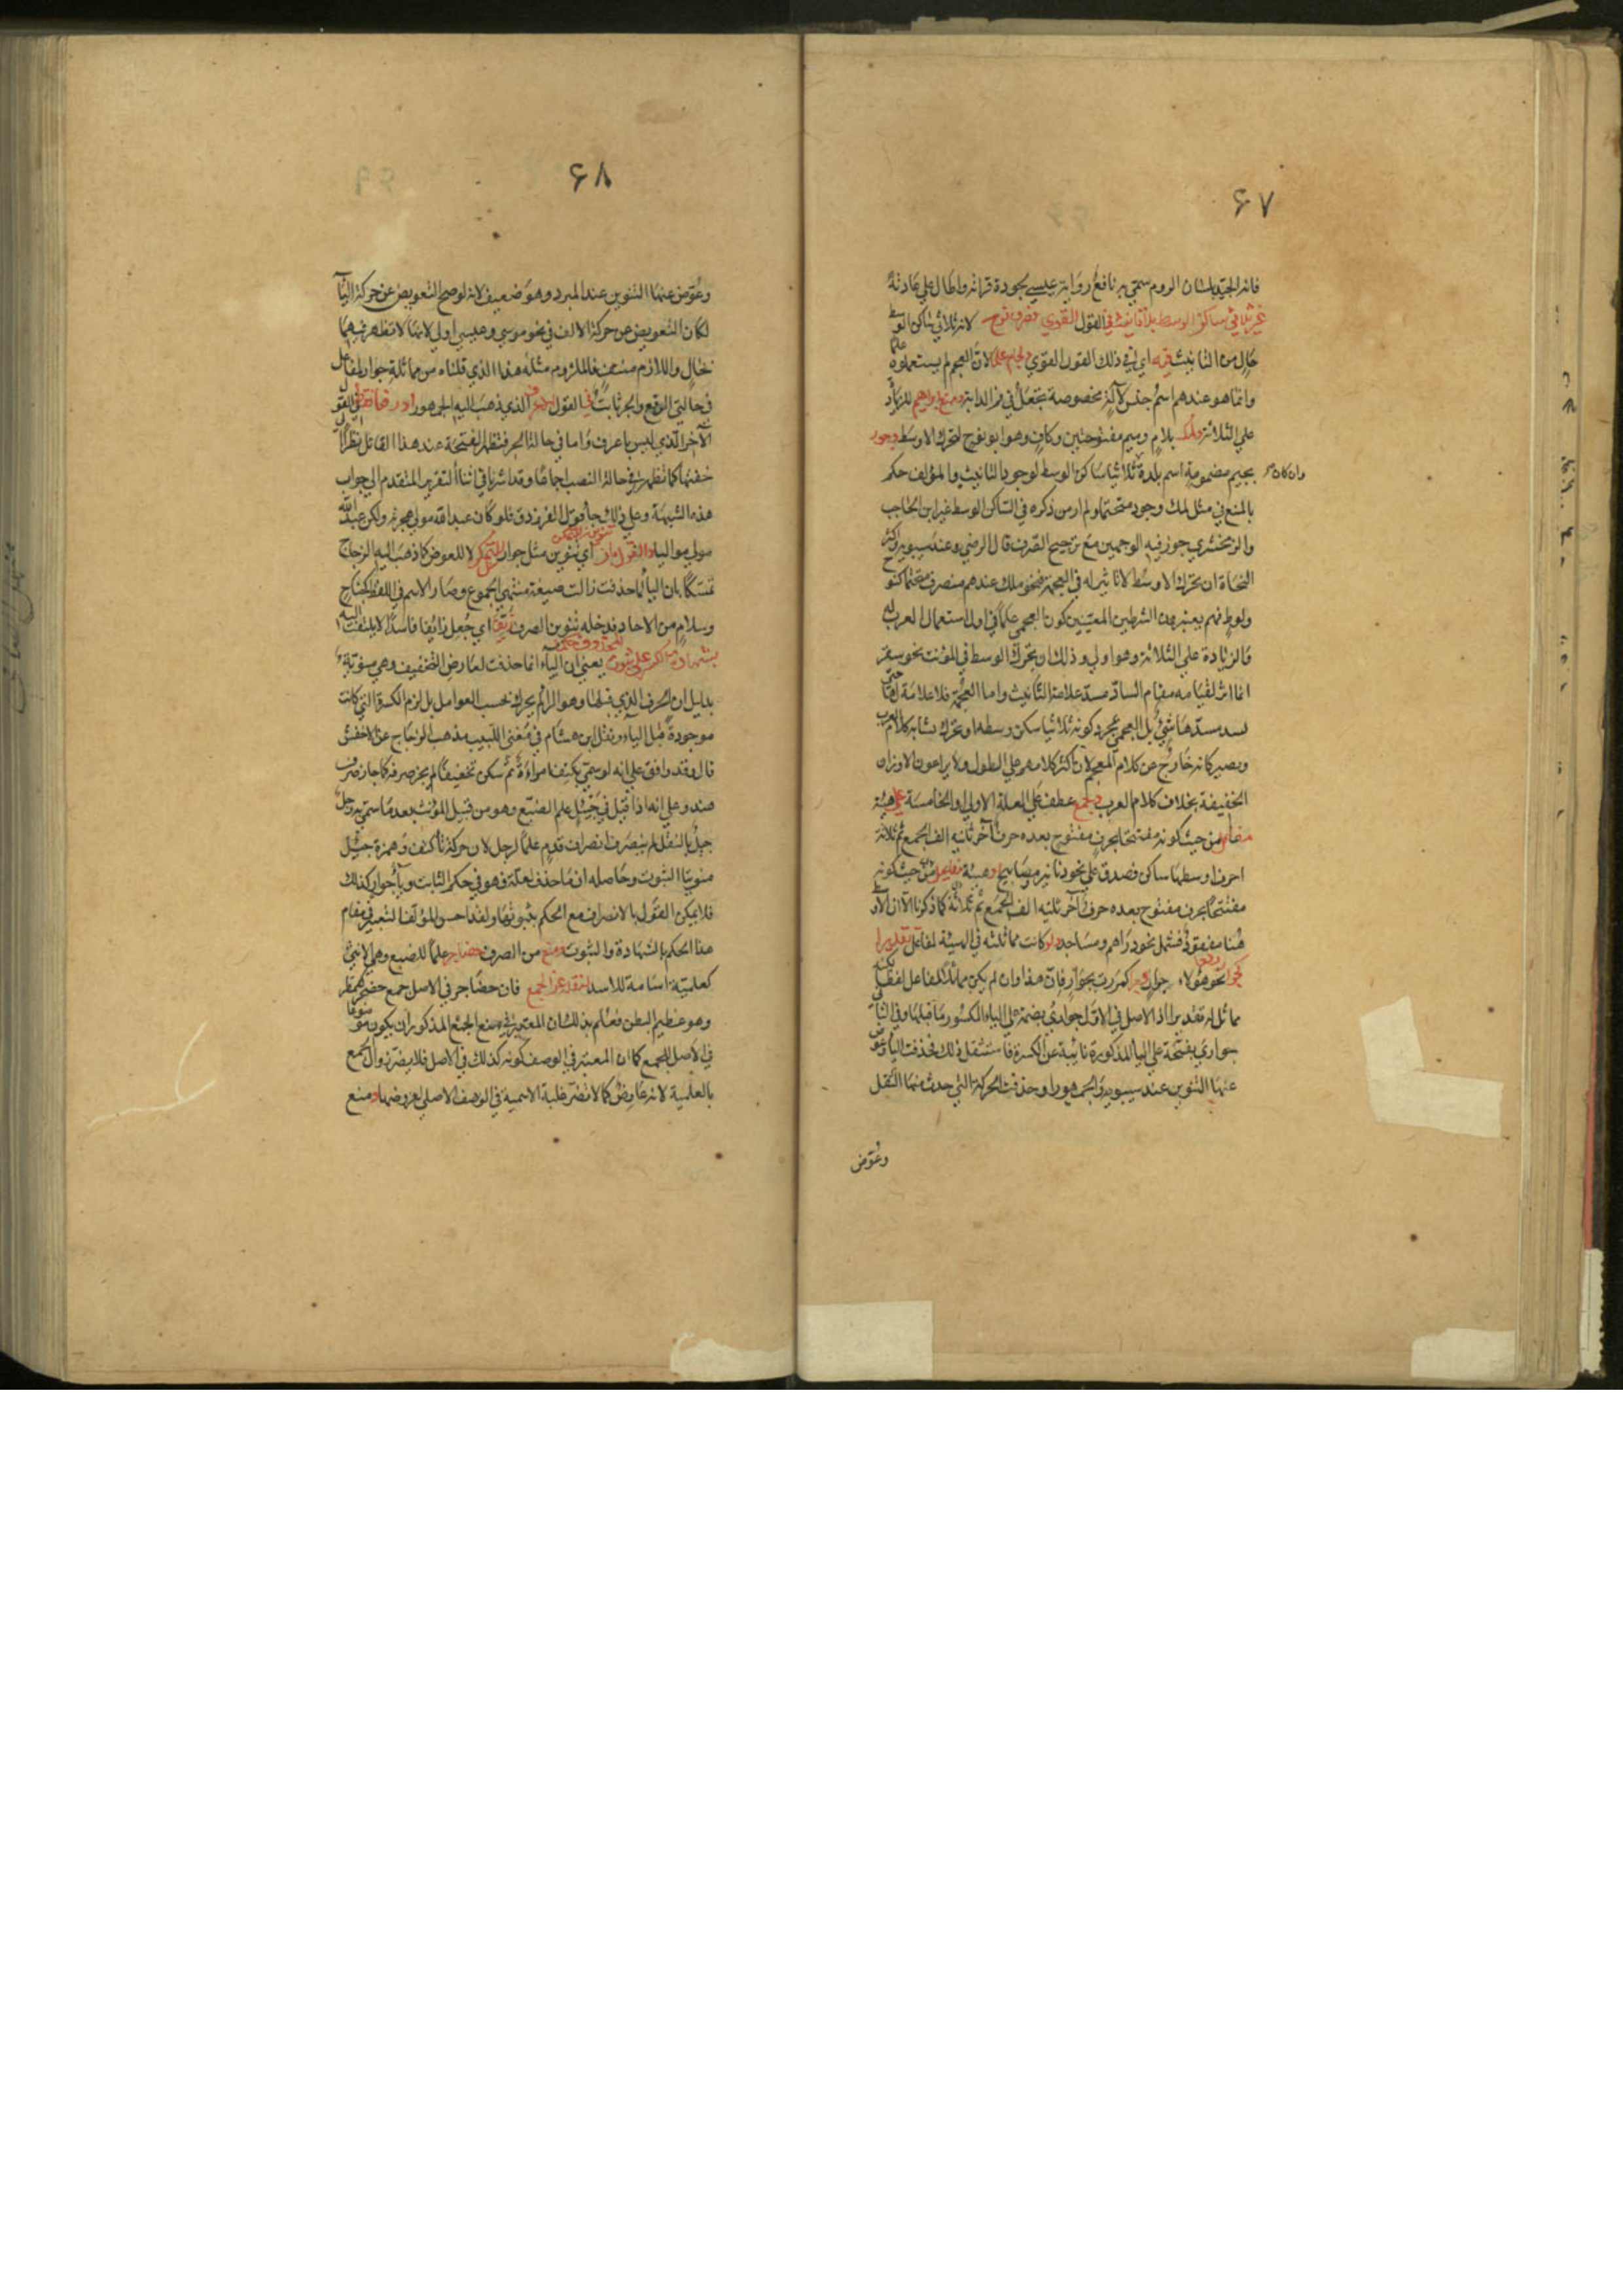 ۶۷
فانه الجيد بلسان الروم سمي به نافع رواية عيسي بجودة قراءته واطال علي عادته
غير ثلاثي ساكن الوسط بلا تانيث في القول القوي فصرف نوح لانه ثلاثي ساكن الوسط
خال من التانيث فيه اي في ذلك القول القوي ولجام علما لان العجم لم يستعملوه علما
وانما هو عندهم اسم جنس لآلة مخصوصة تجعل في فم الدابة ومنع ابراهيم للزيادة
علي الثلاثة ولمك بلام وميم مفتوحتين وكاف وهو ابو نوح لتحرك الاوسط وجور
بجيم مضمومة اسم بلدة ثلاثيا ساكن الوسط لوجود التانيث والمؤلف حكم
وان كان
بالمنع في مثل لمك وجور متحتما ولم ار من ذكره في الساكن الوسط غير ابن الحاجب
والزمخشري جوز فيه الوجهين مع ترجيح الصرف قال الرضي وعند سيبويه واكثر
النحاة ان تحرك الاوسط لا تاثير له في العجمة فنحو ملك عندهم منصرف متحتما كنوح
ولوط فهم يعتبرون الشرطين المعينين كون الاعجمي علما في اول استعمال العرب له
والزيادة علي الثلاثة وهو اولي وذلك ان تحرك الوسط في المؤنث نحو سقر
انما اثر لقيامه مقام الساد مسد علامة التانيث واما العجمة فلا علامة لها حتي
يسد مسدها شئ بل العجمي بمجرد كونه ثلاثيا سكن وسطه او تحرك يشابه كلام العرب
ويصير كانه خارج عن كلام العجم لان اكثر كلامهم علي الطول ولا يراعون الاوزان
الخفيفة بخلاف كلام العرب وجمع عطف علي العلة الاولي او الخامسة علي هيئة
مفاعل من حيث كونه مفتتحا بحرف مفتوح بعده حرف آخر ثلثه الف الجمع ثم ثلاثة
احرف اوسطها ساكن فصدق علي نحو دنانير ومصابيح او هيئة مفاعل من حيث كونه
مفتتحا بحرف مفتوح بعده حرف آخر ثلثه الف الجمع ثم ثلاثة كما ذكرنا الا ان الاوسط
هنا مفقود فشمل نحو دراهم ومساجد ولو كانت مماثلته في الهيئة لمفاعل تقديرا
كجوار نحو هؤلاء جوار رفعا وجر كمررت بجوار فان هذا وان لم يكن مماثلا لمفاعل لفظا لكنه
مماثل له تقديرا اذ الاصل في الاول جواري بضمة علي الياء المكسور ما قبلها وفي الثاني
بجواري بفتحة علي الياء المذكورة نائبة عن الكسرة فاستثقل ذلك فحذفت الياء وعوض
عنها التنوين عند سيبويه والجمهور او حذفت الحركة التي حدث منها الثقل
وعوض
۶۸
وعوض عنها التنوين عند المبرد وهو ضعيف لانه لو صح التعويض عن حركة الياء
لكان التعويض عن حركة الالف في نحو موسي وعيسي اولي لانها لا تظهر فيهما
بحال واللازم منتف فالملزوم مثله هذا الذي قلناه من مماثلة جوار لمفاعل
في حالتي الرفع والجر ثابت في القول الاعرف الذي ذهب اليه الجمهور او رفعا فقط في القول
الآخر الذي ليس باعرف واما في حالة الجر فتظهر الفتحة عند هذا القائل نظرا الي
خفتها كما تظهر في حالة النصب اجماعا وقد اشرنا في اثناء التقرير المتقدم الي جواب
هذه الشبهة وعلي ذلك جاء قول الفرزدق فلو كان عبد الله مولي هجوته ولكن عبد الله
مولي مواليا والقول بان اي تنوين مثل جوار تنوين التمكن لا للعوض كما ذهب اليه الزجاج
تمسكا بان الياء لما حذفت زالت صيغة منتهي الجموع وصار الاسم في اللفظ كجناح
وسلام من الاحاد فدخله تنوين الصرف زيف اي جعل زائفا فاسدا لا يلتفت اليه
بشهادة الكسر علي ثبوت المحذوف حكما يعني ان الياء انما حذفت لعارض التخفيف وهي منوية
بدليل ان الحرف الذي قبلها وهو الراء لم يحرك بحسب العوامل بل لزم الكسرة التي كانت
موجودة قبل الياء ونقل ابن هشام في مغني اللبيب مذهب الزجاج عن الاخفش
قال وقد وافق علي انه لو سمي بكتف امراءة ثم سكن تخفيفا لم يجز صرفه كما جاز صرف
هند وعلي انه اذا قيل في جيئل علم الضبع وهو من قبيل المؤنث بعد ما سمي به رجل
جيل بالنقل لم ينصرف انصراف قدم علما لرجل لان حركة تاء كتف وهمزة جيئل
منويتا الثبوت وحاصله ان ما حذف لعلة فهو في حكم الثابت وياء جوار كذلك
فلا يمكن القول بالانصراف مع الحكم بثبوتها ولقد احسن المؤلف التعبير في مقام
هذا الحكم بالشهادة والثبوت ومنع من الصرف حضاجر علما للضبع وهي الانثي
كعلمية اسامة للاسد لنقله عن الجمع فان حضاجر في الاصل جمع حضجر كهزبر
وهو عظيم البطن فعلم بذلك ان المعتبر في منع الجمع المذكور ان يكون منقولا
في الاصل للجمع كما ان المعتبر في الوصف كونه كذلك في الاصل فلا يضر زوال الجمع
بالعلمية لانه عارض كما لا تضر غلبة الاسمية في الوصف الاصلي لعروضها ومنع